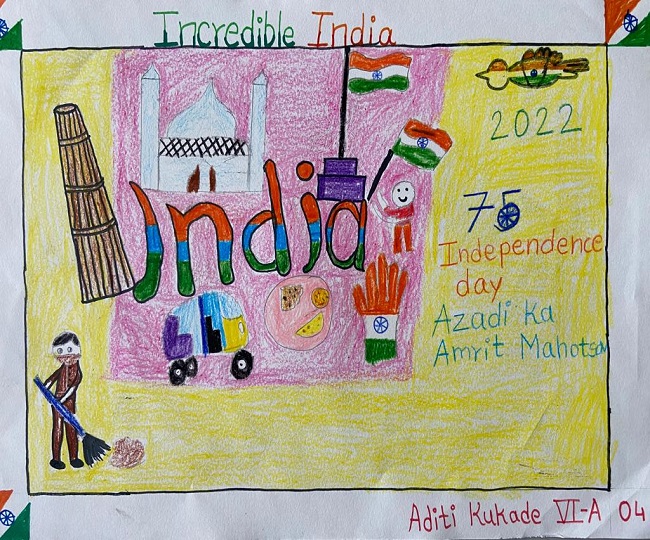 Incredible India
India
2022
75
Independence
day
Azadi Ka
Amrit Mahotsav
Aditi Kukade VI-A 04